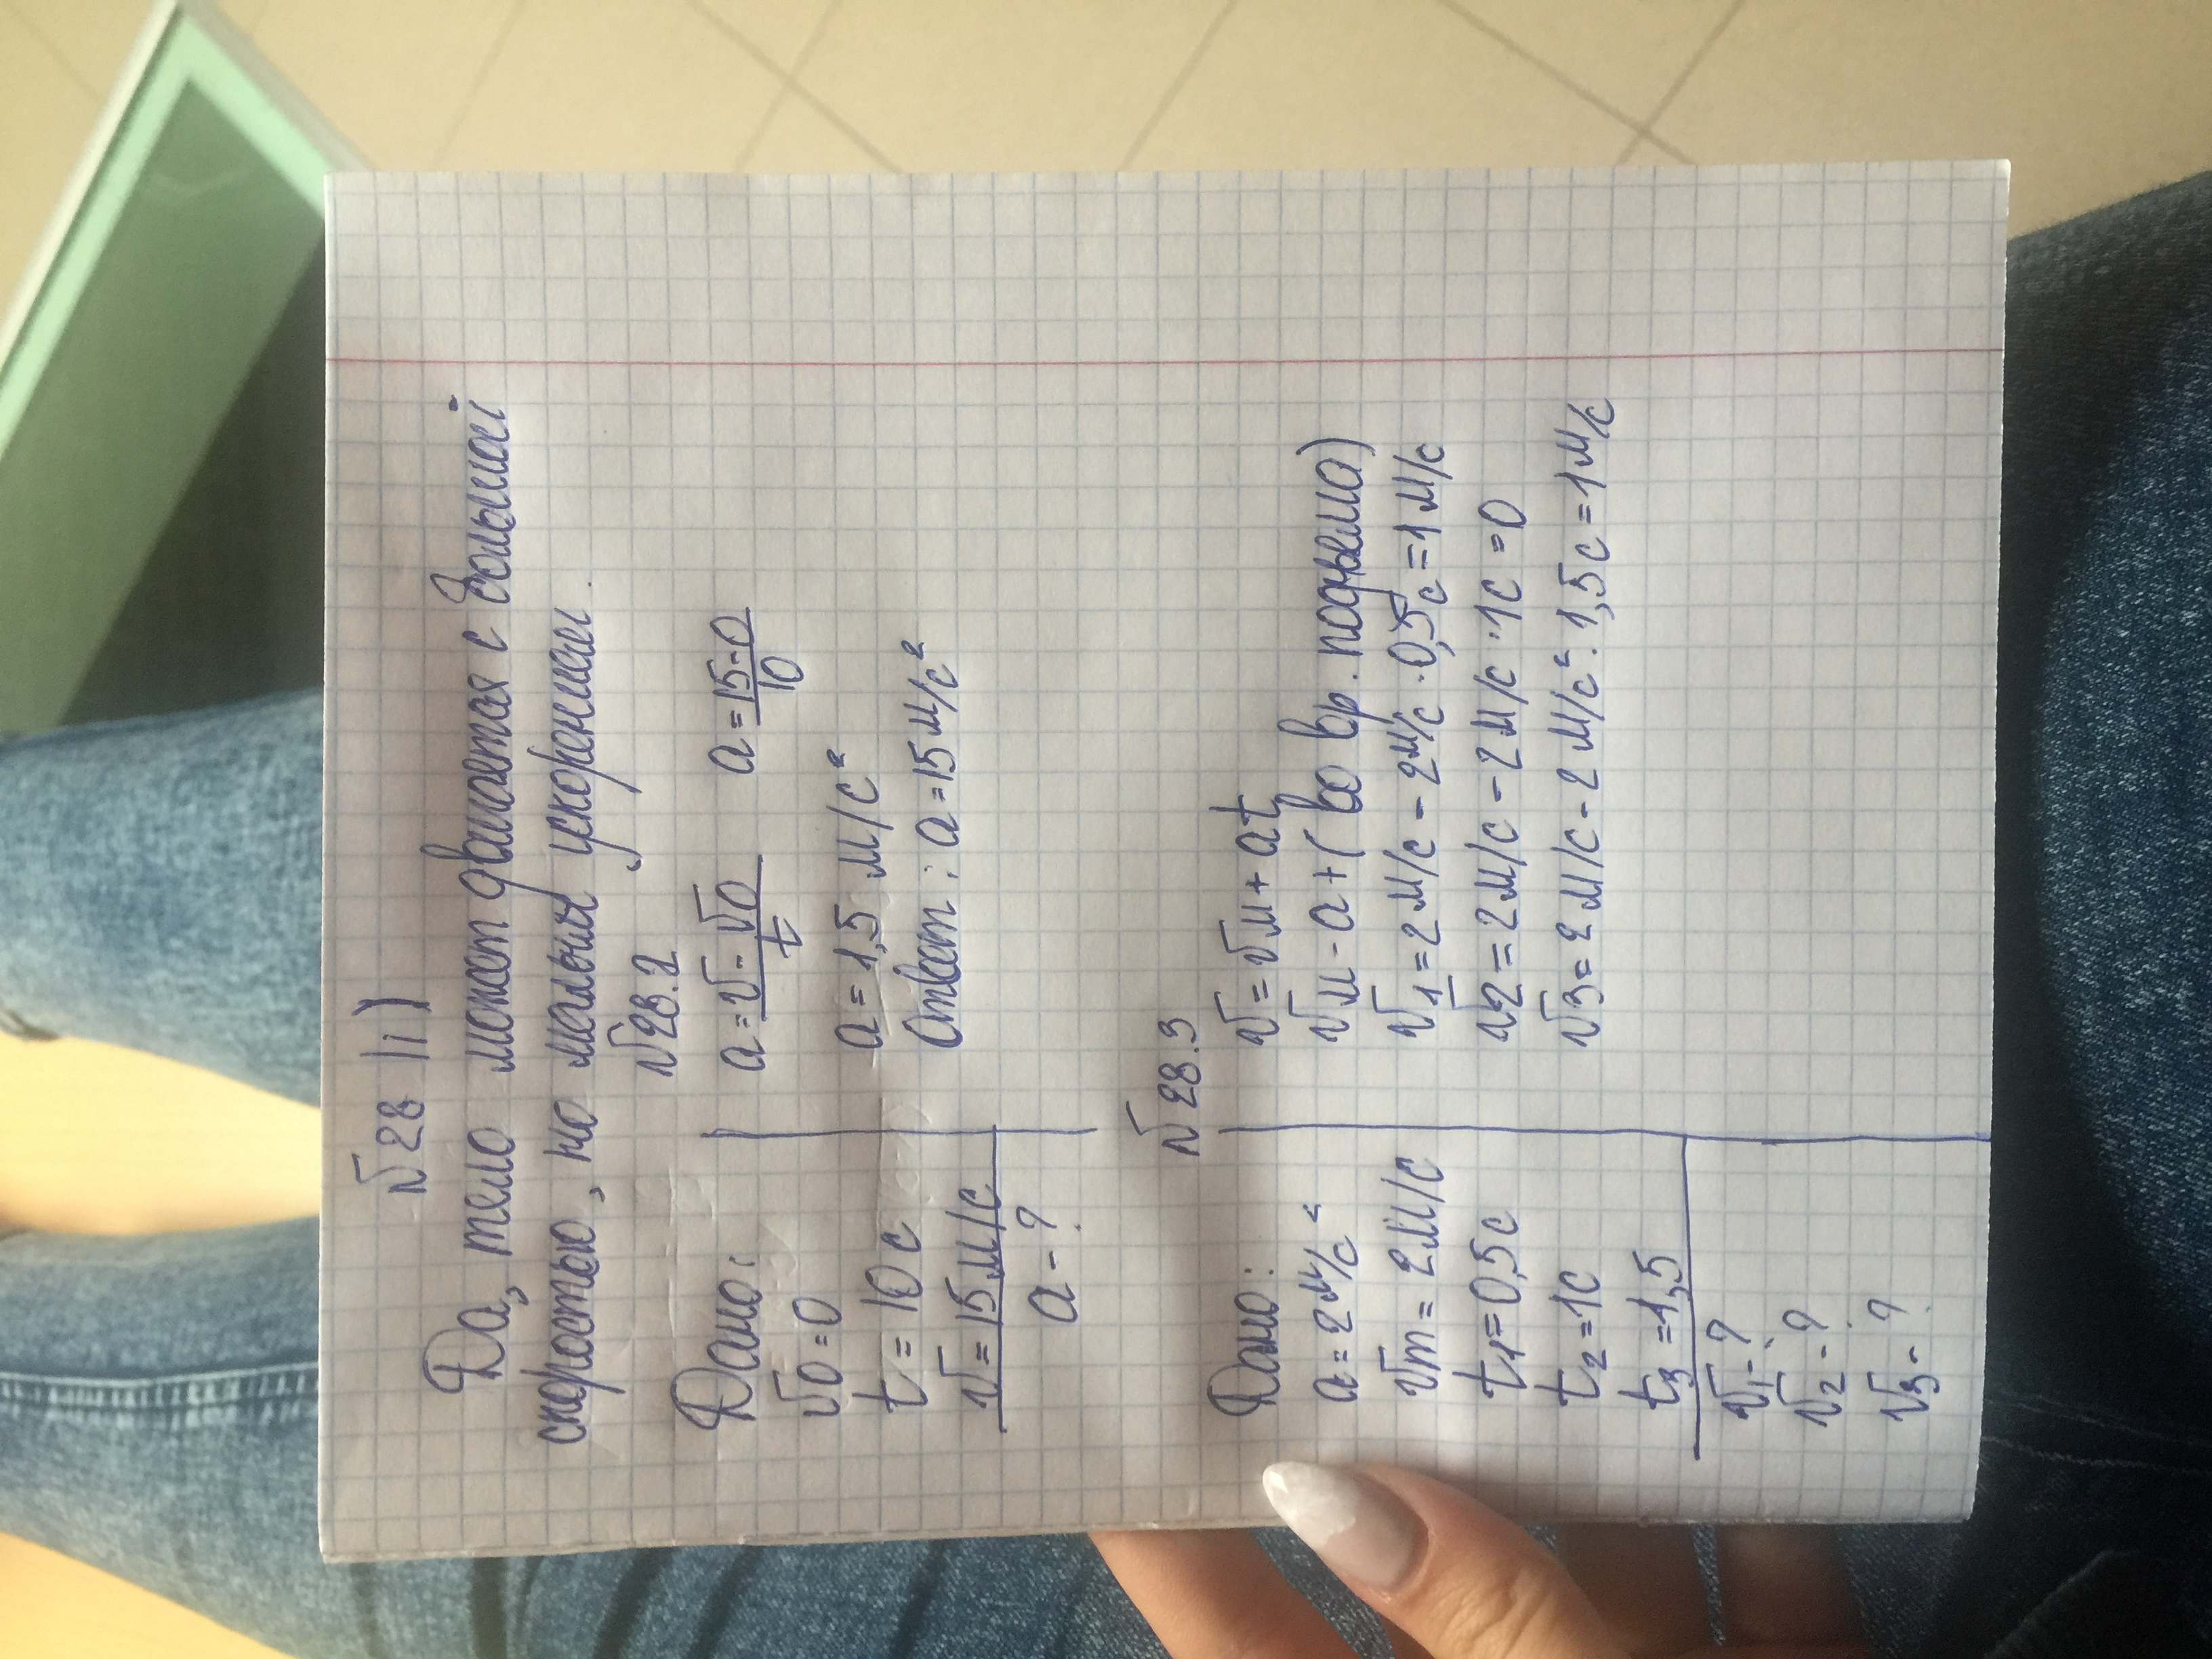 №28 |1)
Да, тело может двигатся с большой
скоростью, но малым ускорением.
№28.2
Дано:
v0=0
t=10 с
v=15 м/с
a-?
a=v-v0/t a=15-0/10
a=1,5 м/с²
Ответ: a=15 м/с²
№28.3
Дано:
a=2 м/с²
vm=2 м/с
t1=0,5 с
t2=1с
t3=1,5
v1-?
v2-?
v3-?
v=vм+at
vм-a+(во вр. подъема)
v1=2 м/с-2м/с·0,5с=1 м/с
v2=2 м/с-2 м/с·1с=0
v3=2 м/с-2 м/с²·1,5с=1м/с